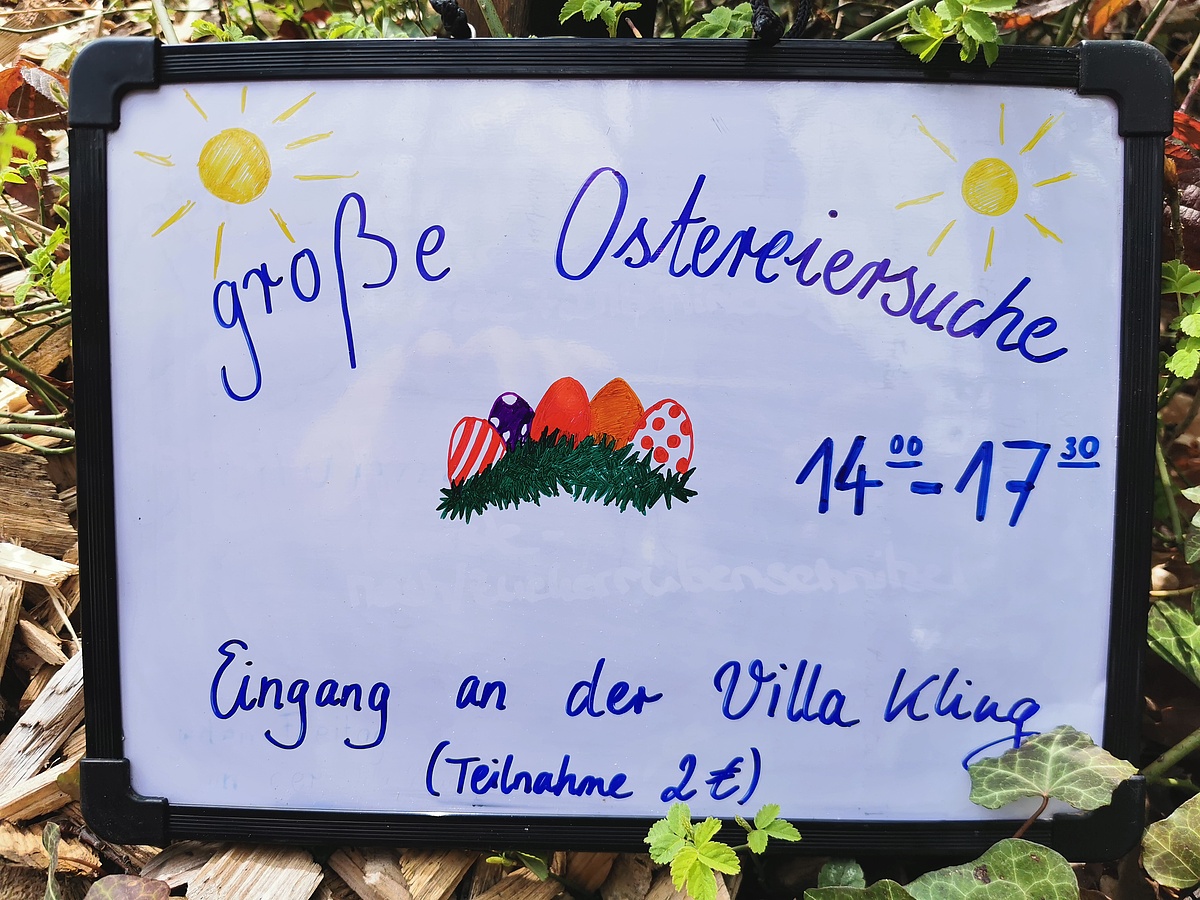 große Ostereiersuche
14⁰⁰-17³⁰
Eingang an der Villa Kling
(Teilnahme 2€)